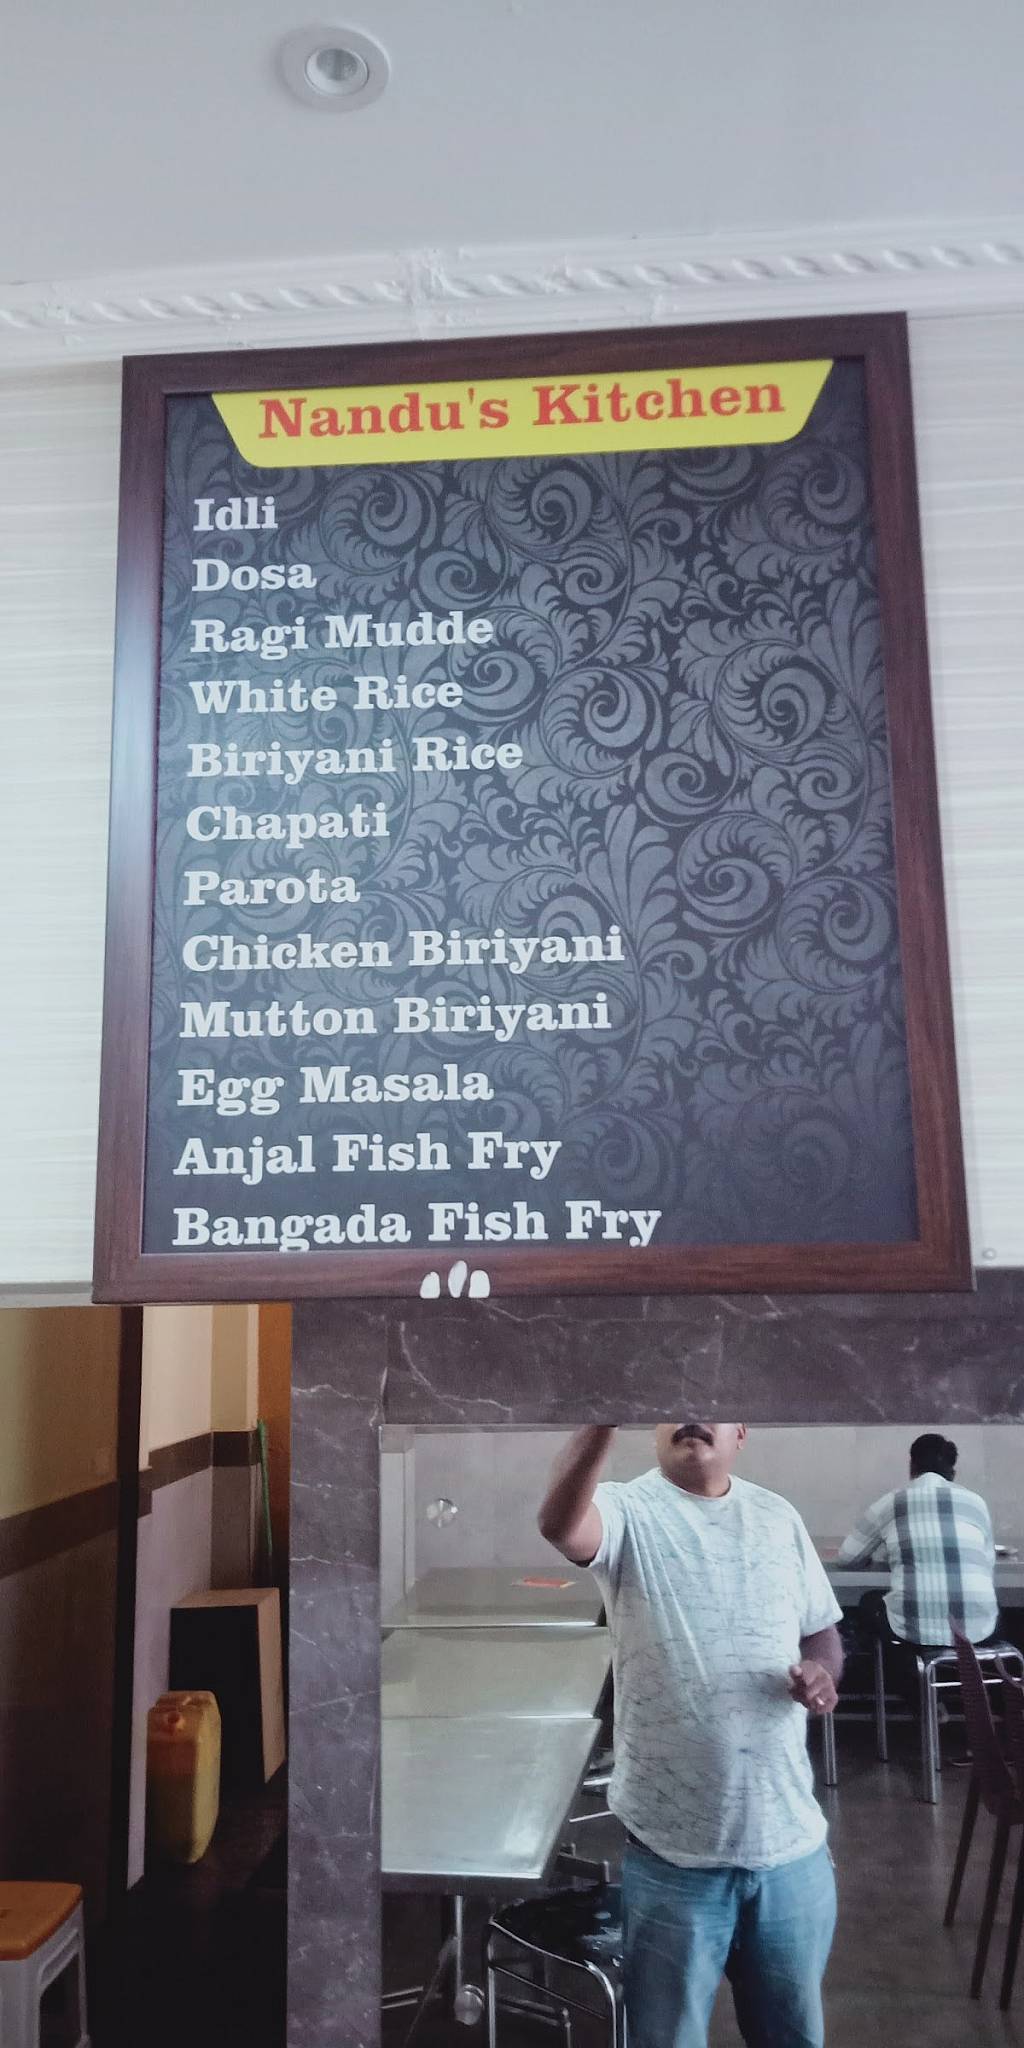 Nandu's Kitchen
Idli
Dosa
Ragi Mudde
White Rice
Biriyani Rice
Chapati
Parota
Chicken Biriyani
Mutton Biriyani
Egg Masala
Anjal Fish Fry
Bangada Fish Fry